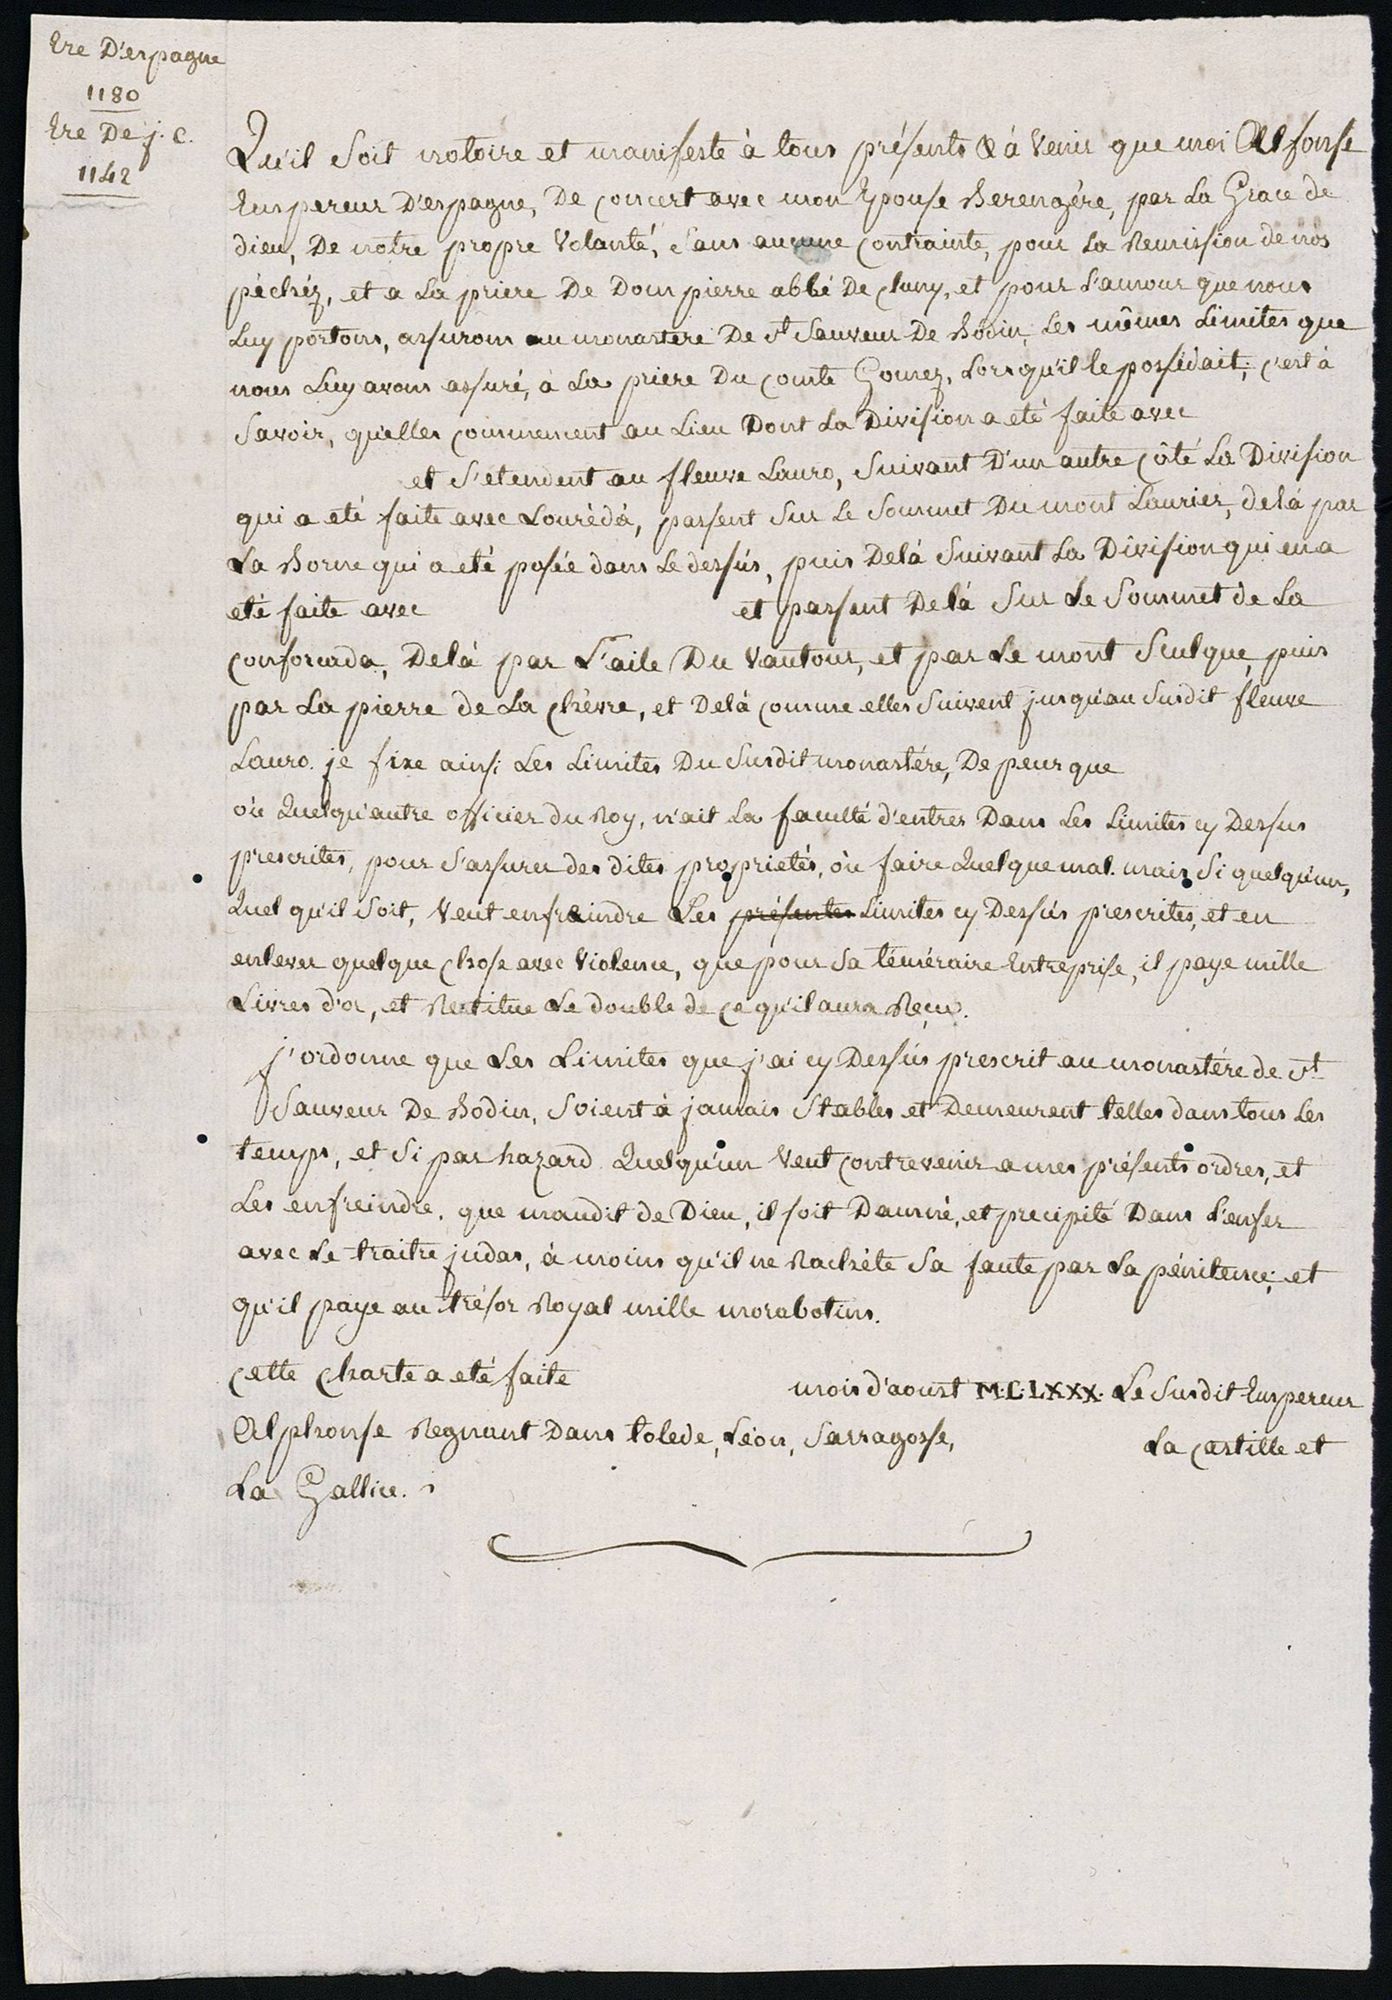 Ere D'espagne
1180
Ere De j. C.
1142
Qu'il soit notoire et manifeste à tous présents & à venir que moi Alfonse
Empereur D'espagne, De concert avec mon Epouse Berengére, par La Grace de
dieu, De notre propre volonté, sans aucune contrainte, pour La Remission de nos
péchéz, et a La priere De Dom pierre abbé De Cluny, et pour L'amour que nous
Luy portons, assurons au monastere De st Sauveur De Bodin, Les mêmes Limites que
nous Luy avons assuré, à La priere Du Comte Gomez, Lorsqu'il le possédait, c'est à
Savoir, qu'elles commencent au Lieu Dont La Division a eté faite avec
et s'etendent au fleuve Lauro, Suivant D'un autre côté La Division
qui a eté faite avec Louréda, passent sur Le Sommet Du mont Laurier, delà par
La Borne qui a eté posée dans Le dessus, puis Delà Suivant La Division qui en a
eté faite avec et passent Delà Sur Le Sommet de La
Conforcada, Delà par L'aile Du Vautour, et par Le mont Sculque, puis
par La pierre de La Chèvre, et Delà comme elles Suivent jusqu'au Susdit fleuve
Lauro. je fixe ainsi Les Limites Du Susdit monastére, De peur que
où Quelqu'autre officier du Roy, n'ait La faculté d'entrer Dans Les Limites cy Dessus
prescrites, pour s'assurer des dites proprietés, où faire Quelque mal. mais Si quelqu'un,
Quel qu'il Soit, Veut enfreindre Les présentes Limites cy Dessus prescrites, et en
enlever quelque Chose avec Violence, que pour Sa téméraire Entreprise, il paye mille
Livres d'or, et Restitue Le double de ce qu'il aura Reçu.
j'ordonne que Les Limites que j'ai cy Dessus prescrit au monastére de st
Sauveur De Bodin, Soient à jamais Stables et Demeurent telles dans tous Les
temps, et Si par hazard Quelqu'un Veut contrevenir a mes présents ordres, et
Les enfreindre, que maudit de Dieu, il soit Damné, et precipité Dans L'enfer
avec Le traitre judas, à moins qu'il ne Rachéte Sa faute par La pénitence, et
qu'il paye au trésor Royal mille morabotins.
Cette Charte a eté faite mois d'aoust M.C.LXXX. Le Susdit Empereur
Alphonse Regnant Dans tolede, Léon, Sarragosse, La Castille et
La Gallice.